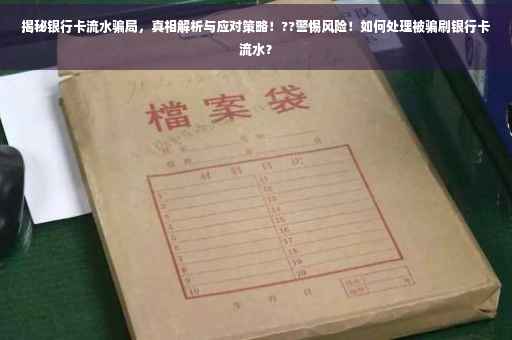 揭秘银行卡流水骗局，真相解析与应对策略！??警惕风险！如何处理被骗刷银行卡
流水？
檔案袋
材料目次
1 11
2 12
3 13
4 14
5 15
6 16
7 17
8 18
9 19
10 20
年 月 日